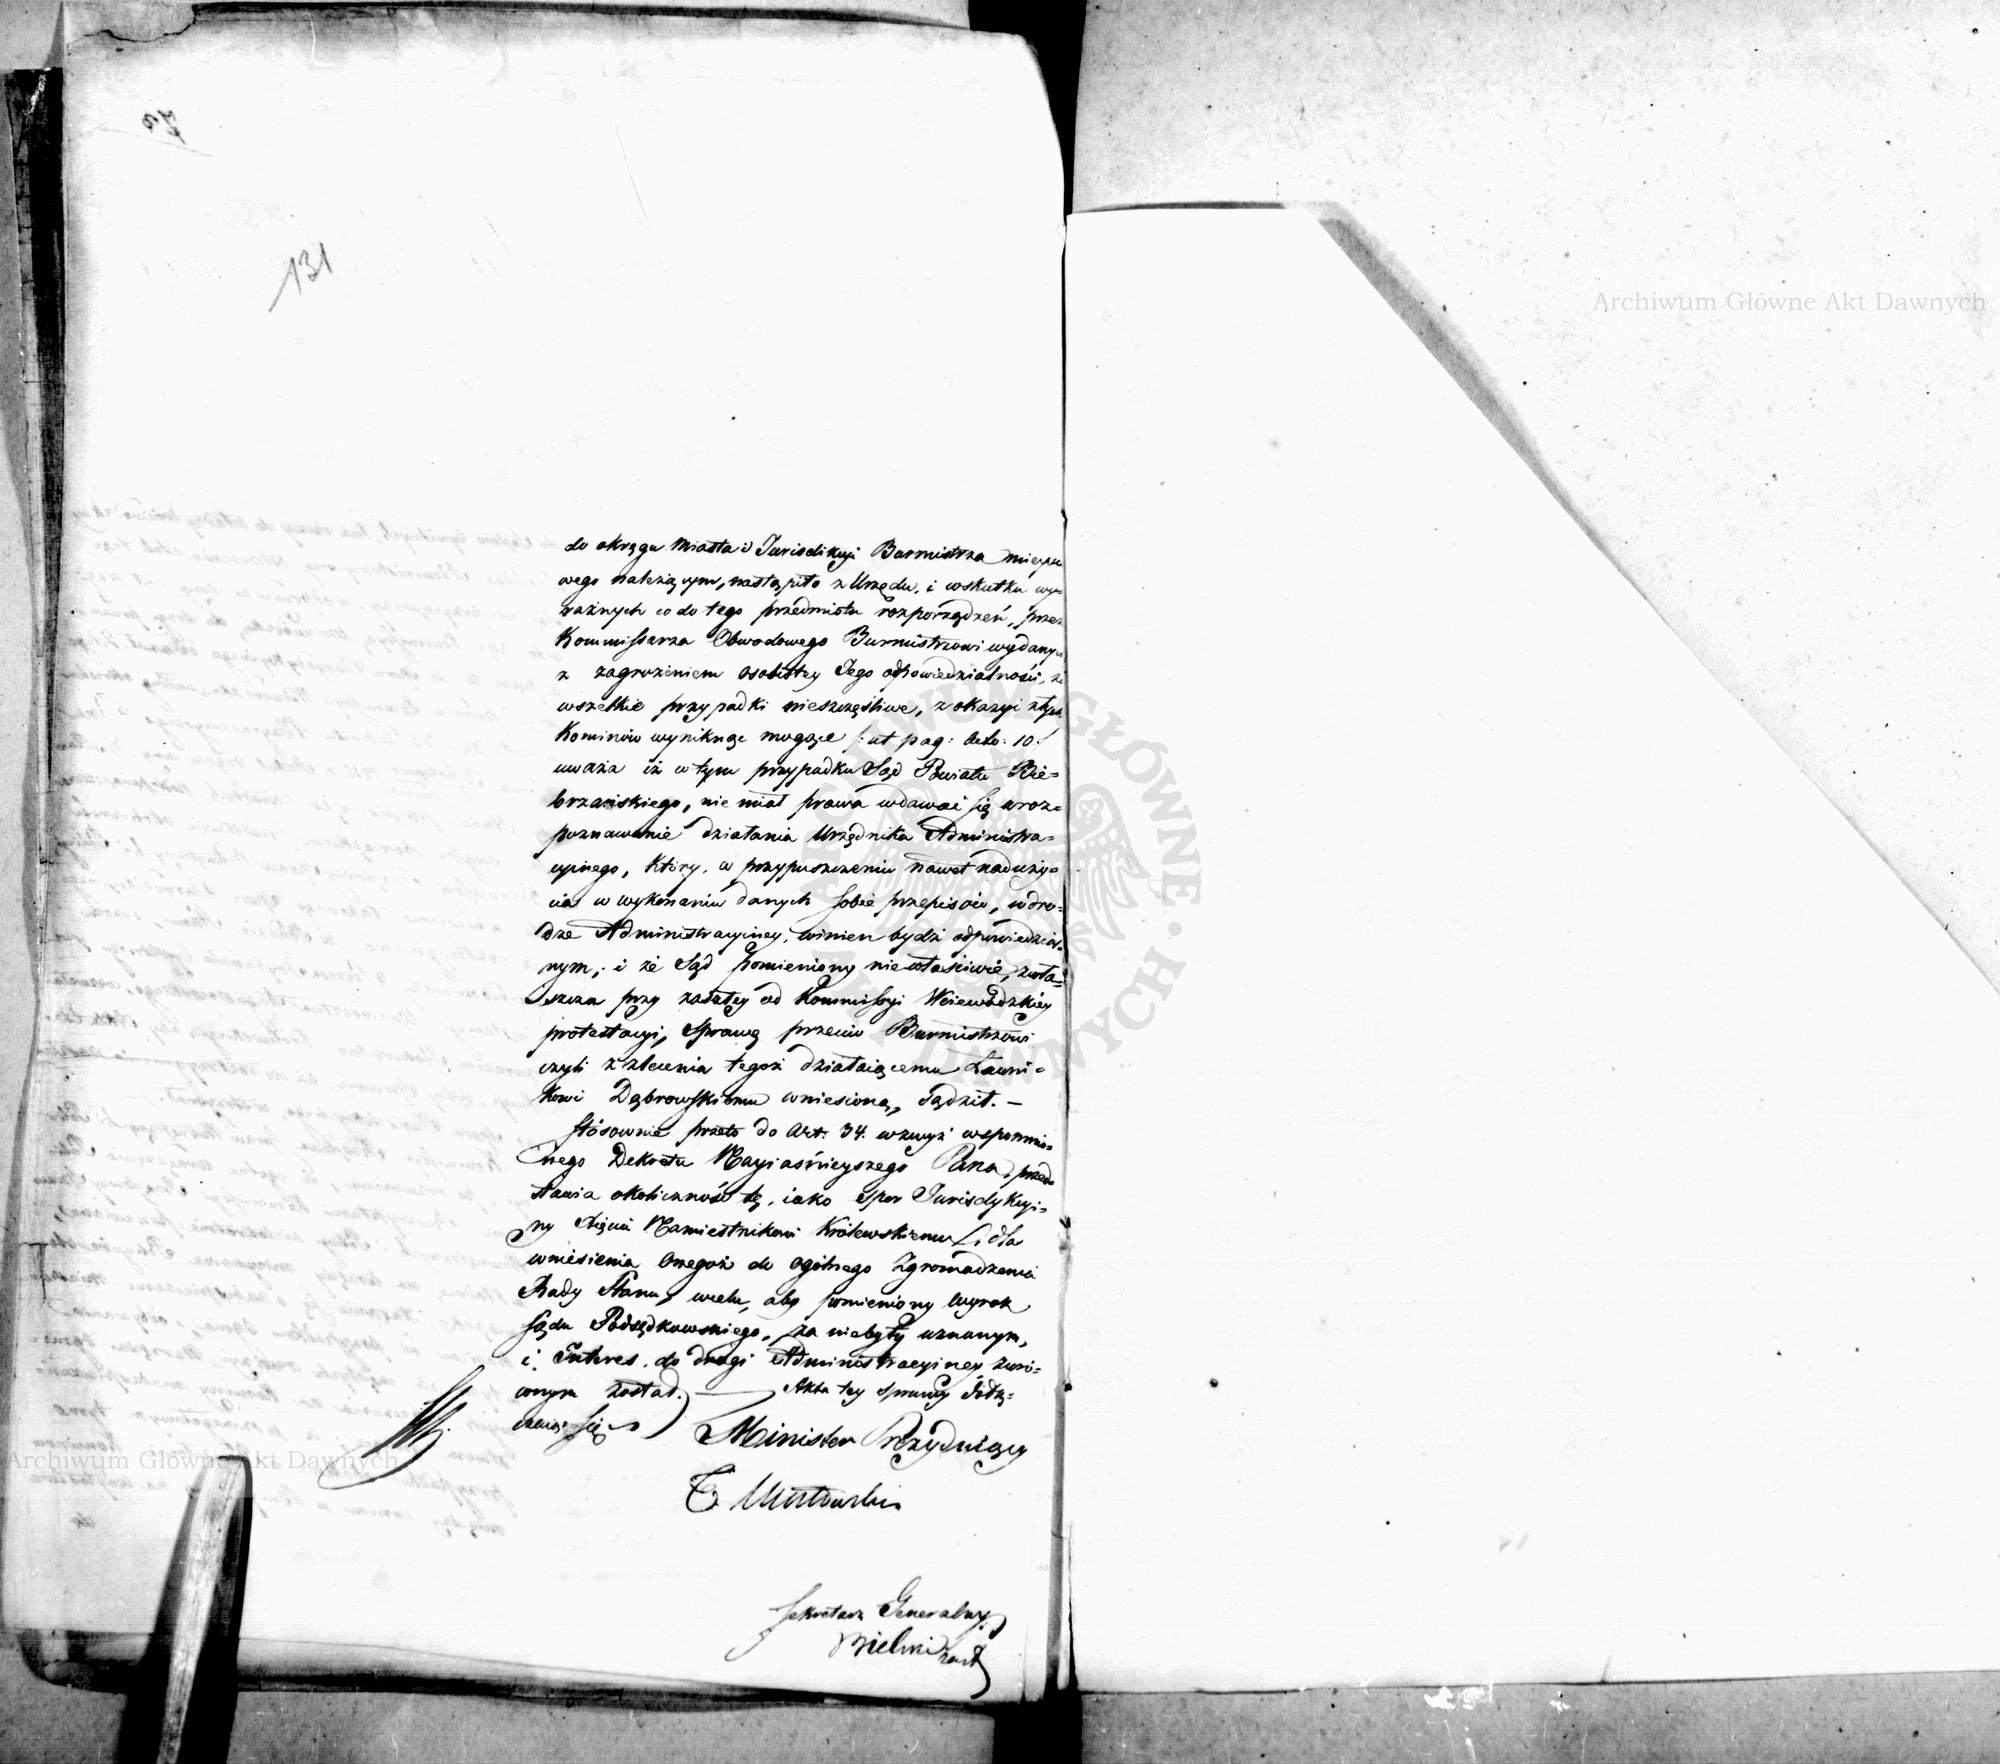 131
do okręgu Miasta i Jurisdikcyi Burmistrza mieysco
wego należącym, nastąpiło z Urzędu, i wskutku wy
raźnych co do tego przedmiotu rozporządzeń, przez
Kommissarza Obwodowego Burmistrzowi wydanych
z zagrożeniem osobistey Jego odpowiedzialności, za
wszelkie przypadki nieszczęśliwe, z okazyi złych
Kominów wyniknąć mogące /: ut pag: Acto: 10:/
uważa iż w tym przypadku Sąd Powiatu Bie=
brzańskiego, nie miał prawa wdawać się w roz=
poznawanie działania Urzędnika Administra=
cyinego, który, w przypuszczeniu nawet naduży=
cia w wykonaniu danych sobie przepisów, w dro=
dze Administracyiney, winien bydź odpowiedzial=
nym; i że Sąd pomieniony niewłaściwie, zwła=
szcza przy zaszłey od Kommissyi Woiewódzkiey
protestacyi, Sprawę przeciw Burmistrzowi
czyli z zlecenia tegoż działaiącemu Ławni=
kowi Dąbrowskiemu wniesioną, Sądził. —
Stósownie przeto do Art: 34. wzwyż wspomnio=
nego Dekretu Nayiaśnieyszego Pana, przed
stawia okoliczność tę, iako spor Jurisdykcyi=
ny Xięciu Namiestnikowi Królewskiemu dla
wniesienia Onegoż do ogólnego Zgromadzenia
Rady Stanu, w celu, aby pomieniony wyrok
Sądu Podsędkowskiego, za niebyły uznanym,
i Interes do drogi Administracyiney zwró=
conym został. — Akta tey sprawy dołą=
czaią się
Minister Prezyduiący
T Mostowski
Sekretarz Generalny